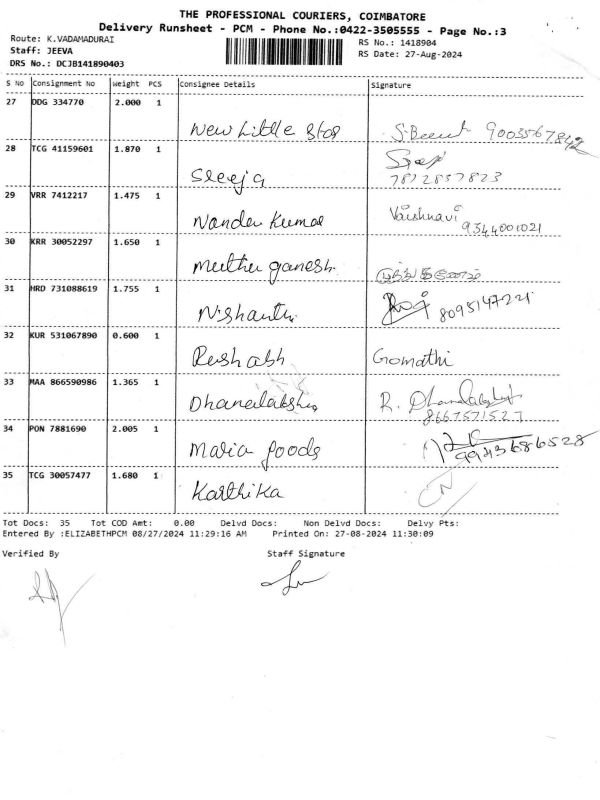 THE PROFESSIONAL COURIERS, COIMBATORE
Delivery Runsheet - PCM - Phone No.:0422-3505555 - Page No.:3
Route: K.VADAMADURAI
RS No.: 1418904
Staff: JEEVA
RS Date: 27-Aug-2024
DRS No.: DCJB141890403
S No Consignment No Weight PCS Consignee Details Signature
27 DDG 334770 2.000 1
New Little Star 9003567842
28 TCG 41159601 1.870 1
Sreeja 7812857823
29 VRR 7412217 1.475 1
Nanda Kumar Vaishnavi
9344001021
30 KRR 30052297 1.650 1
Muthu ganesh
31 HRD 731088619 1.755 1
Nishanthi 8095147221
32 KUR 531067890 0.600 1
Rushabh Gomathi
33 MAA 866590986 1.365 1
Dhanalakshmi R. Dhanalakshmi
8667571527
34 PON 7881690 2.005 1
Maria foods 9943686528
35 TCG 30057477 1.680 1
Karthika
Tot Docs: 35 Tot COD Amt: 0.00 Delvd Docs: Non Delvd Docs: Delvy Pts:
Entered By :ELIZABETHPCM 08/27/2024 11:29:16 AM Printed On: 27-08-2024 11:30:09
Verified By Staff Signature